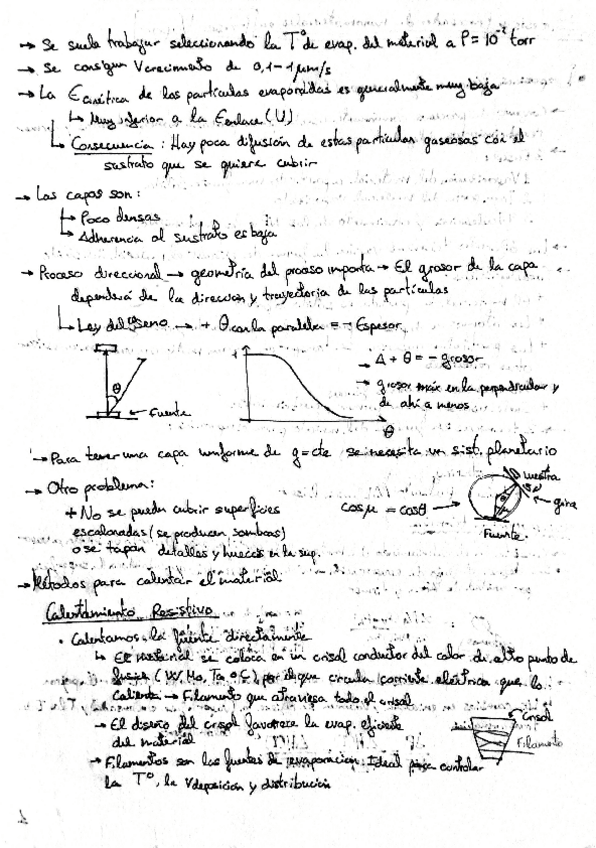 → Se suele trabajar seleccionando la Tº de evap. del material a P = 10⁻² torr
→ Se consiguen Vcrecimiento de 0,1 - 1 μm/s
→ La Ecinética de las partículas evaporadas es generalmente muy baja
↳ Muy inferior a la Eenlace (U)
↳ Consecuencia: Hay poca difusión de estas partículas gaseosas con el
sustrato que se quiere cubrir
→ Las capas son:
↳ Poco densas
↳ Adherencia al sustrato es baja
→ Proceso direccional → geometría del proceso importa → El grosor de la capa
dependerá de la dirección y trayectoria de las partículas
↳ Ley del coseno → + θ con la paralela = - Espesor
θ
← Fuente
1
θ
→ A + θ = - grosor
→ grosor max en la perpendicular y
de ahí a menos
→ Para tener una capa uniforme de g = cte se necesita un sist. planetario
→ Otro problema:
+ No se pueden cubrir superficies
escalonadas (se producen sombras)
o se tapan detalles y huecos en la sup.
cos μ = cos θ →
muestra
← gira
Fuente
→ Métodos para calentar el material
Calentamiento Resistivo
• Calentamos la fuente directamente
↳ El material se coloca en un crisol conductor del calor de alto punto de
fusión (W, Mo, Ta o C) por el que circula corriente eléctrica que lo
calienta → Filamento que atraviesa todo el crisol
→ El diseño del crisol favorece la evap. eficiente
del material
Crisol
Filamento
→ Filamentos son las fuentes de evaporación. Ideal para controlar
la Tº, la Vdeposición y distribución